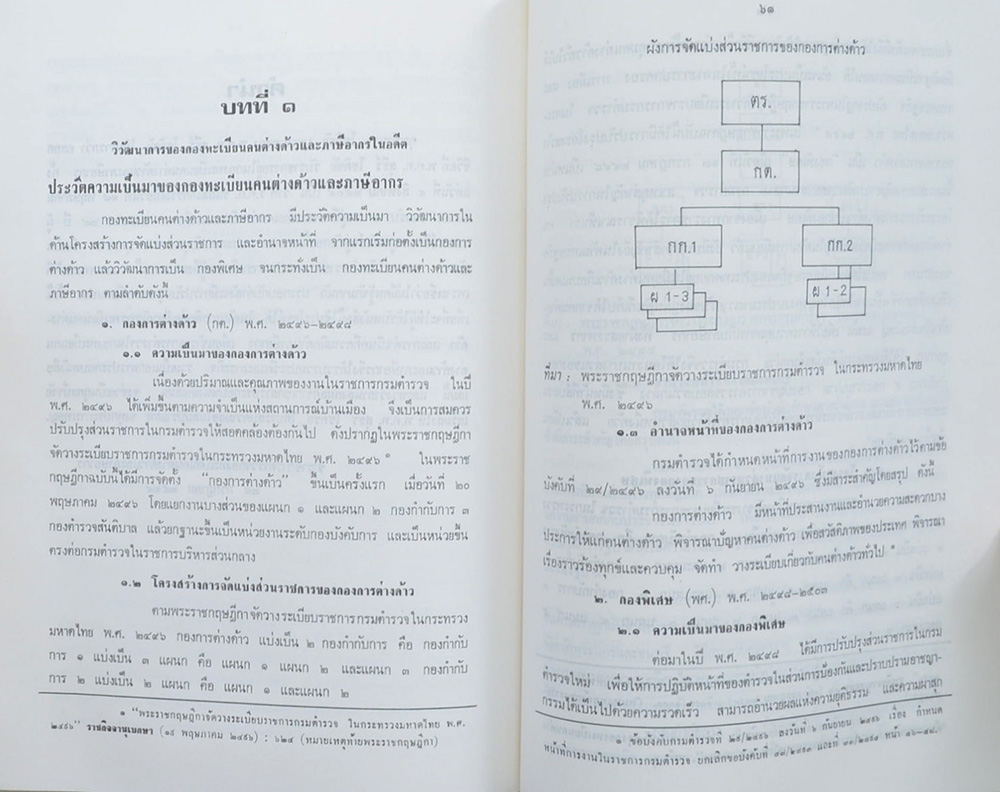 บทที่ ๑
วิวัฒนาการของกองทะเบียนคนต่างด้าวและภาษีอากรในอดีต
ประวัติความเป็นมาของกองทะเบียนคนต่างด้าวและภาษีอากร
กองทะเบียนคนต่างด้าวและภาษีอากร มีประวัติความเป็นมา วิวัฒนาการใน
ด้านโครงสร้างการจัดแบ่งส่วนราชการ และอำนาจหน้าที่ จากแรกเริ่มก่อตั้งเป็นกองการ
ต่างด้าว แล้ววิวัฒนาการเป็น กองพิเศษ จนกระทั่งเป็น กองทะเบียนคนต่างด้าวและ
ภาษีอากร ตามลำดับดังนี้
๑. กองการต่างด้าว (กต.) พ.ศ. ๒๔๙๖-๒๔๙๘
๑.๑ ความเป็นมาของกองการต่างด้าว
เนื่องด้วยปริมาณและคุณภาพของงานในราชการกรมตำรวจ ในปี
พ.ศ. ๒๔๙๖ ได้เพิ่มขึ้นตามความจำเป็นแห่งสถานการณ์บ้านเมือง จึงเป็นการสมควร
ปรับปรุงส่วนราชการในกรมตำรวจให้สอดคล้องต้องกันไป ดังปรากฏในพระราชกฤษฎีกา
จัดวางระเบียบราชการกรมตำรวจในกระทรวงมหาดไทย พ.ศ. ๒๔๙๖ ๑ ในพระราช
กฤษฎีกาฉบับนี้ได้มีการจัดตั้ง "กองการต่างด้าว" ขึ้นเป็นครั้งแรก เมื่อวันที่ ๒๐
พฤษภาคม ๒๔๙๖ โดยแยกงานบางส่วนของแผนก ๑ และแผนก ๒ กองกำกับการ ๓
กองตำรวจสันติบาล แล้วยกฐานะขึ้นเป็นหน่วยงานระดับกองบังคับการ และเป็นหน่วยขึ้น
ตรงต่อกรมตำรวจในราชการบริหารส่วนกลาง
๑.๒ โครงสร้างการจัดแบ่งส่วนราชการของกองการต่างด้าว
ตามพระราชกฤษฎีกาจัดวางระเบียบราชการกรมตำรวจ ในกระทรวง
มหาดไทย พ.ศ. ๒๔๙๖ กองการต่างด้าว แบ่งเป็น ๒ กองกำกับการ คือ กองกำกับ
การ ๑ แบ่งเป็น ๓ แผนก คือ แผนก ๑ แผนก ๒ และแผนก ๓ กองกำกับ
การ ๒ แบ่งเป็น ๒ แผนก คือ แผนก ๑ และแผนก ๒
๑ "พระราชกฤษฎีกาจัดวางระเบียบราชการกรมตำรวจ ในกระทรวงมหาดไทย พ.ศ.
๒๔๙๖" ราชกิจจานุเบกษา (๑๙ พฤษภาคม ๒๔๙๖) : ๖๒๔ (หมายเหตุท้ายพระราชกฤษฎีกา)
๖๑
ผังการจัดแบ่งส่วนราชการของกองการต่างด้าว
ตร.
กต.
กก.1
กก.2
ผ 1-3
ผ 1-2
ที่มา : พระราชกฤษฎีกาจัดวางระเบียบราชการกรมตำรวจ ในกระทรวงมหาดไทย
พ.ศ. ๒๔๙๖
๑.๓ อำนาจหน้าที่ของกองการต่างด้าว
กรมตำรวจได้กำหนดหน้าที่การงานของกองการต่างด้าวไว้ตามข้อ
บังคับที่ ๒๙/๒๔๙๖ ลงวันที่ ๖ กันยายน ๒๔๙๖ ซึ่งมีสาระสำคัญโดยสรุป ดังนี้
กองการต่างด้าว มีหน้าที่ประสานงานและอำนวยความสะดวกบาง
ประการให้แก่คนต่างด้าว พิจารณาปัญหาคนต่างด้าว เพื่อสวัสดิภาพของประเทศ พิจารณา
เรื่องราวร้องทุกข์และควบคุม จัดทำ วางระเบียบเกี่ยวกับคนต่างด้าวทั่วไป ๑
๒. กองพิเศษ (พศ.) พ.ศ. ๒๔๙๘-๒๕๐๓
๒.๑ ความเป็นมาของกองพิเศษ
ต่อมาในปี พ.ศ. ๒๔๙๘ ได้มีการปรับปรุงส่วนราชการในกรม
ตำรวจใหม่ เพื่อให้การปฏิบัติหน้าที่ของตำรวจในส่วนการป้องกันและปราบปรามอาชญา-
กรรมได้เป็นไปด้วยความรวดเร็ว สามารถอำนวยผลแห่งความยุติธรรม และความผาสุก
๑ ข้อบังคับกรมตำรวจที่ ๒๙/๒๔๙๖ ลงวันที่ ๖ กันยายน ๒๔๙๖ เรื่อง กำหนด
หน้าที่การงานในราชการกรมตำรวจ ยกเลิกข้อบังคับที่